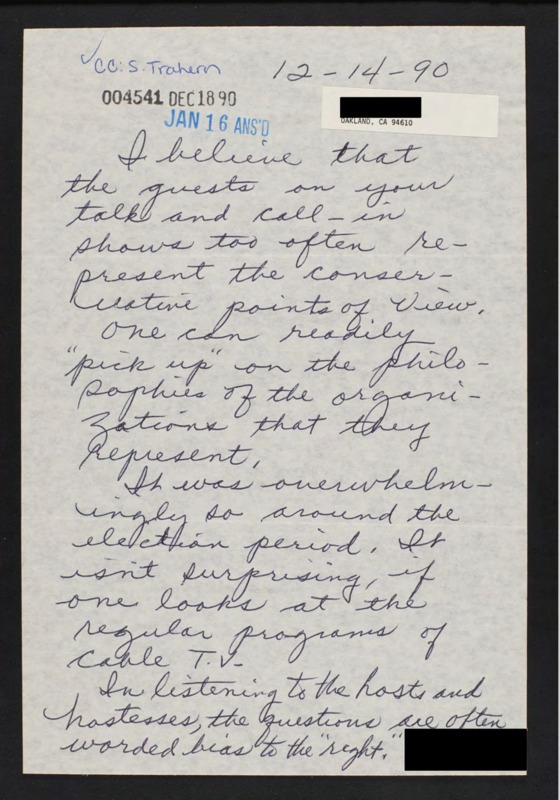 ✓
CC: S. Trahern
12-14-90
004541 DEC18 90
JAN 16 ANS'D
OAKLAND, CA 94610
I believe that
the guests on your
talk and call-in
shows too often re-
present the conser-
vative points of view.
One can readily
"pick up" on the philo-
sophies of the organi-
zations that they
represent.
It was overwhelm-
ingly so around the
election period. It
isn't surprising, if
one looks at the
regular programs of
cable T.V.
In listening to the hosts and
hostesses, the questions are often
worded bias to the "right."